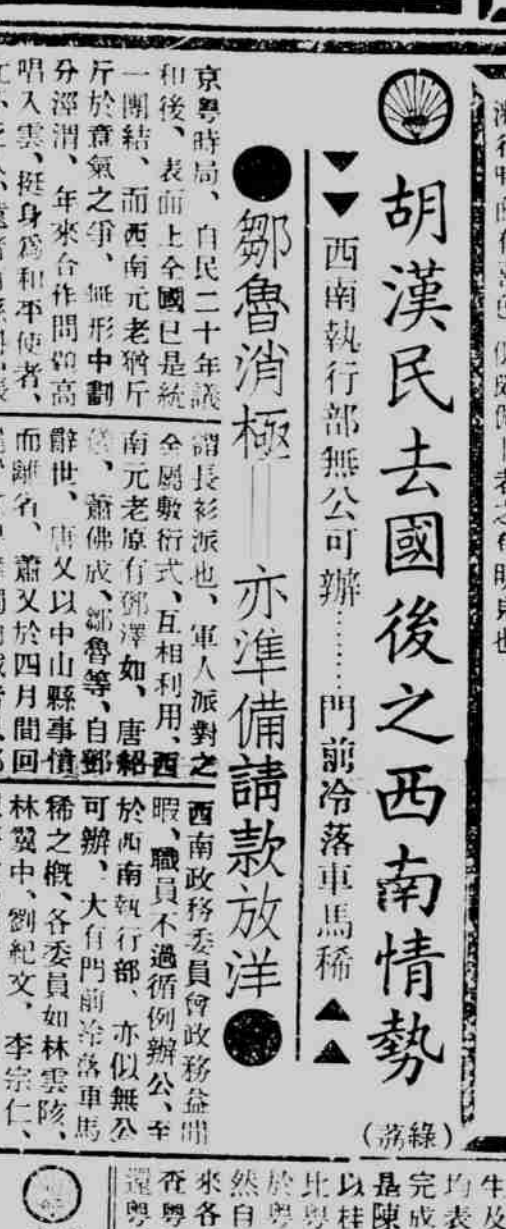 胡漢民去國後之西南情勢
(荔綠)
▼▼西南執行部無公可辦………門前冷落車馬稀▲▲
●鄒魯消極──亦準備請款放洋●
京粵時局、自民二十年議
和後、表面上全國已是統
一團結、而西南元老猶斤
斤於意氣之爭、無形中劃
分涇渭、年來合作問題高
唱入雲、挺身爲和平使者、
謂長衫派也、軍人派對之
全屬敷衍式、互相利用、西
南元老原有鄧澤如、唐紹
儀、蕭佛成、鄒魯等、自鄧
辭世、唐又以中山縣事憤
而離省、蕭又於四月間回
西南政務委員會政務益閒
暇、職員不過循例辦公、至
於西南執行部、亦似無公
可辦、大有門前冷落車馬
稀之概、各委員如林雲陔、
林翼中、劉紀文、李宗仁、
牛及
均表
完成
是陳
以桂
比與
於粵
然自
來各
查粵
還粵